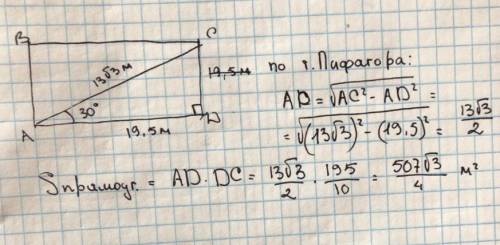 B C
13√3 м
19,5 м
30°
A D
19,5 м
по т. Пифагора:
AD = √AC² - AD² =
= √(13√3)² - (19,5)² = 13√3/2
Sпрямоуг. = AD · DC = 13√3/2 · 195/10 = 507√3/4 м²